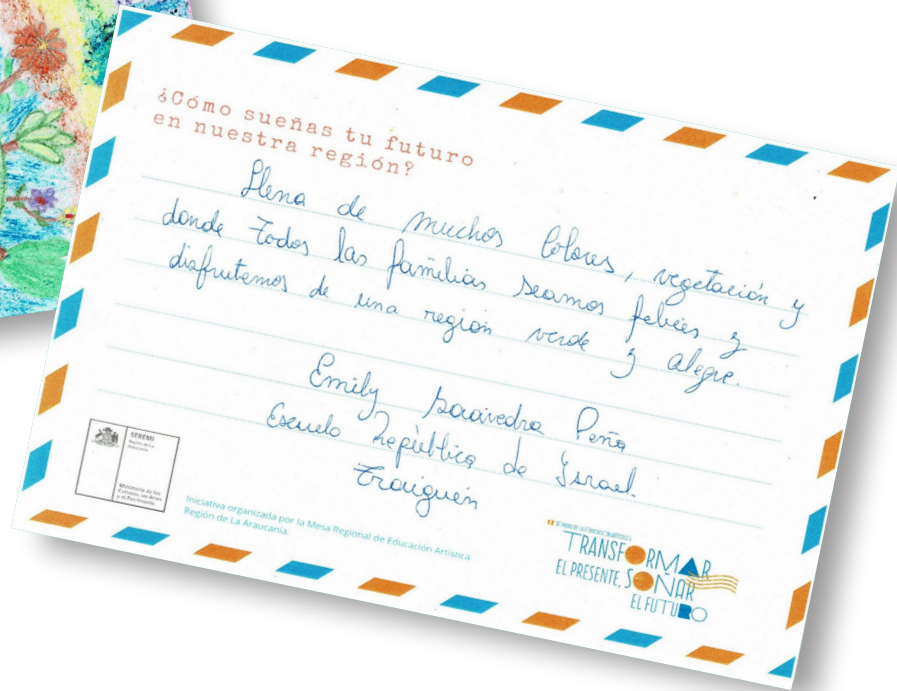 ¿Cómo sueñas tu futuro
en nuestra región?
Llena de muchos colores, vegetación y
donde todos las familias seamos felices y
disfrutemos de una region verde y alegre.
Emily Saavedra Peña
Escuela República de Israel.
Traiguén
SEREMI
Región de La
Araucanía
Ministerio de las
Culturas, las Artes
y el Patrimonio
Iniciativa organizada por la Mesa Regional de Educación Artística
Región de La Araucanía.
TRANSFORMAR
EL PRESENTE, SOÑAR
EL FUTURO